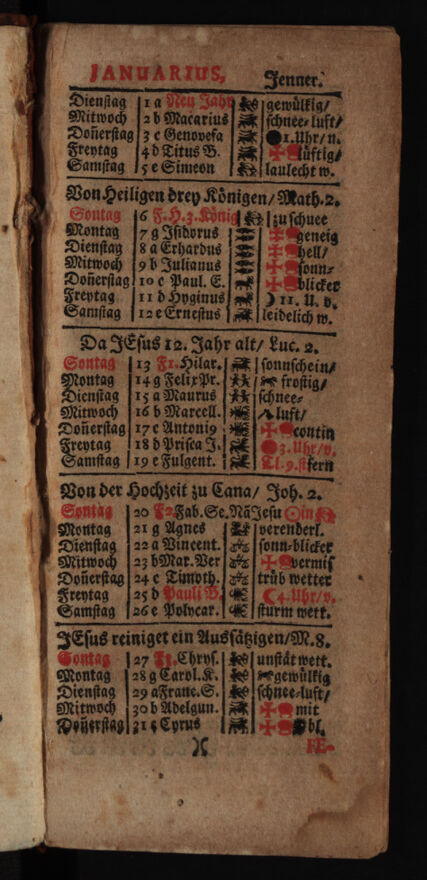 JANUARIUS, Jenner.
Dienstag 1 a Neu Jahr gewülkig/
Mitwoch 2 b Macarius schnee-luft/
Doñerstag 3 c Genovefa 1.Uhr/n.
Freytag 4 d Titus B. lüftig/
Samstag 5 e Simeon laulecht w.
Von Heiligen drey Königen/Math.2.
Sontag 6 F.H.3.König zu schnee
Montag 7 g Isidorus geneig
Dienstag 8 a Erhardus hell/
Mitwoch 9 b Julianus sonn-
Doñerstag 10 c Paul. E. blicker
Freytag 11 d Hyginus 11. U. v.
Samstag 12 e Ernestus leidelich w.
Da JEsus 12. Jahr alt/ Luc. 2.
Sontag 13 F1.Hilar. sonnschein/
Montag 14 g Felix Pr. frostig/
Dienstag 15 a Maurus schnee-
Mitwoch 16 b Marcell. luft/
Doñerstag 17 c Antonig contin
Freytag 18 d Prisca J. 3.Uhr/v.
Samstag 19 e Fulgent. Tl.9.stern
Von der Hochzeit zu Cana/ Joh. 2.
Sontag 20 F2.Fab.Se.Nā Jesu in
Montag 21 g Agnes verenderl.
Dienstag 22 a Vincent. sonn-blicker
Mitwoch 23 b Mar.Ver vermis
Doñerstag 24 c Timoth. trüb wetter
Freytag 25 d Pauli B. 4.Uhr/v.
Samstag 26 e Polycar. sturm wett.
JEsus reiniget ein Aussätzigen/M.8.
Sontag 27 F3.Chrys. unstät wett.
Montag 28 g Carol.K. gewülkig
Dienstag 29 a Franc.S. schnee-luft/
Mitwoch 30 b Adelgun. mit
Doñerstag 31 c Cyrus bl.
X FE-